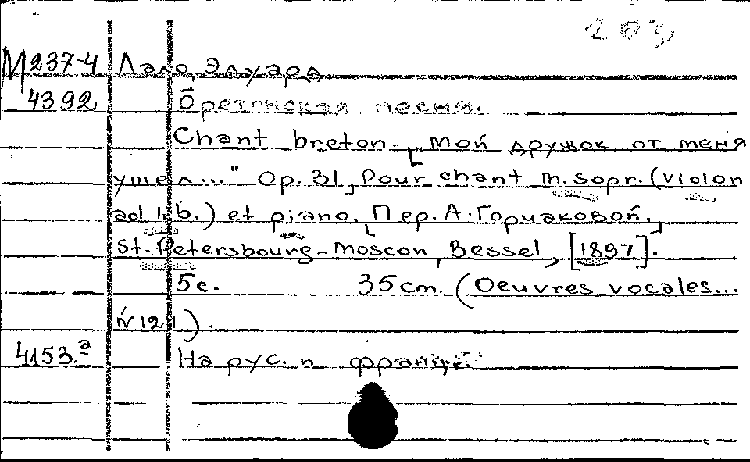 203
М237-4 Лало, Эдуард
4392 Бретонская песня.
Chant breton. „Мой дружок от меня
ушел..." Op. 31, Pour chant m. sopr. (violon
ad lib.) et piano. [Пер. А. Горчаковой.]
St.-Petersbourg-Moscou, Bessel, [1897].
5 с. 35 cm. (Oeuvres vocales...
№ 121).
4153.а На рус. и франц.